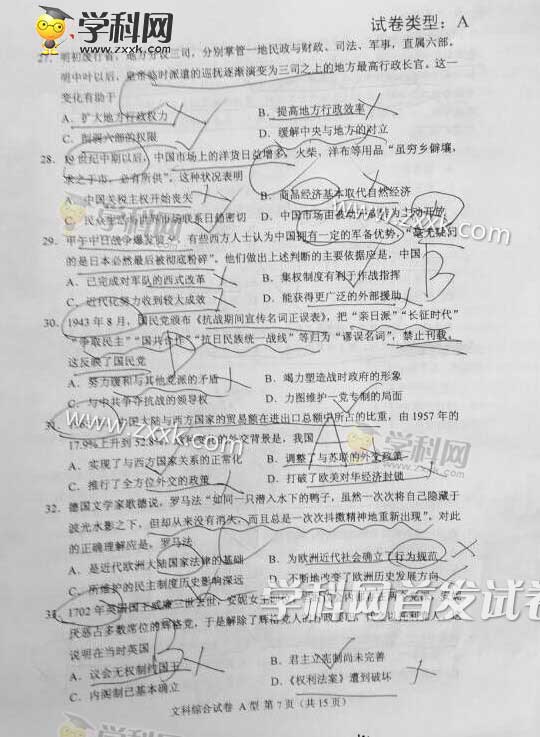 学科网
www.zxxk.com
试卷类型：A
27．明初废行省，地方分设三司，分别掌管一地民政与财政、司法、军事，直属六部。
明中叶以后，皇帝临时派遣的巡抚逐渐演变为三司之上的地方最高行政长官。这一
变化有助于
A．扩大地方行政权力 B．提高地方行政效率
C．削弱六部的权限 D．缓解中央与地方的对立
28．19世纪中期以后，中国市场上的洋货日益增多，火柴、洋布等用品“虽穷乡僻壤，
求之于市，必有所供”。这种状况表明
A．中国关税主权开始丧失 B．商品经济基本取代自然经济
C．民众生活与世界市场联系日趋密切 D．中国市场由被动开放转为主动开放
29．甲午中日战争爆发后，有些西方人士认为中国拥有一定的军备优势，“毫无疑问
的是日本必然最后被彻底粉碎”。他们做出上述判断的主要依据应是，中国
A．已完成对军队的西式改革 B．集权制度有利于作战指挥
C．近代化努力收到较大成效 D．能获得更广泛的外部援助
B
30．1943年8月，国民党颁布《抗战期间宣传名词正误表》，把“亲日派”“长征时代”
“争取民主”“国共合作”“抗日民族统一战线”等归为“谬误名词”，禁止刊载。
这反映了国民党
A．努力缓和与其他党派的矛盾 B．竭力塑造战时政府的形象
C．与中共争夺抗战的领导权 D．力图维护一党专制的局面
www.zxxk.com
学科网
31．中国大陆与西方国家的贸易额在进出口总额中所占的比重，由1957年的
17.9%上升到52.8%，这种变化的外交背景是，我国
A．实现了与西方国家关系的正常化 B．调整了与苏联的外交政策
C．推行了全方位外交的政策 D．打破了欧美对华经济封锁
32．德国文学家歌德说，罗马法“如同一只潜入水下的鸭子，虽然一次次将自己隐藏于
波光水影之下，但却从来没有消失，而且总是一次次抖擞精神地重新出现”。对此
的正确理解应是，罗马法
A．是近代欧洲大陆国家法律的基础 B．为欧洲近代社会确立了行为规范
C．所维护的民主制度历史影响深远 D．不断地改变了欧洲历史发展方向
学科网首发试卷
33．1702年英国国王威廉三世去世，安妮女王即位
厌恶占多数席位的辉格党，于是解除了辉格党人的行政职
说明在当时英国
A．议会无权制约国王 B．君主立宪制尚未完善
C．内阁制已基本确立 D．《权利法案》遭到破坏
B
文科综合试卷 A型 第7页（共15页）
学科网
www.zxxk.com